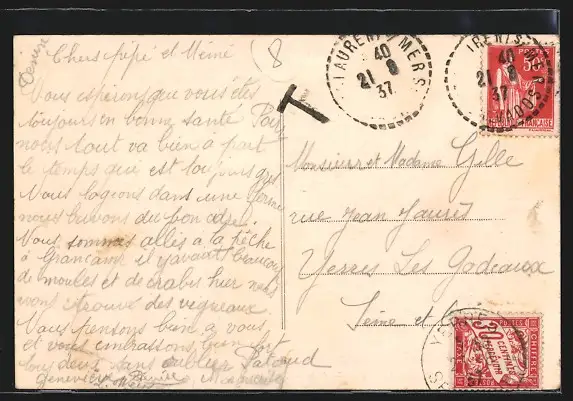 Denise
Chers pépé et Mémé
Vous espérons que vous êtes
toujours en bonne santé Pour
nous tout va bien à part
le temps que est toujours gris
Nous logeons dans une ferme
nous buvons du bon cidre.
Nous sommes allés a la pêche
à Grancamp il y avait beaucoup
de moules et de crabes hier nous
avons trouvé des vigneaux
Nous pensons bien a vous
et vous embrassons bien fort
tous deux sans oublier Pataud
Geneviève Denise
8
T
ST LAURENT S/MER
40
21 8
37
40
21 8
37
CALVADOS
POSTES
50c
Monsieur et Madame Gille
rue Jean Jaurès
Yerres Les Godeaux
Seine et
A PERCEVOIR
30
CENTIMES